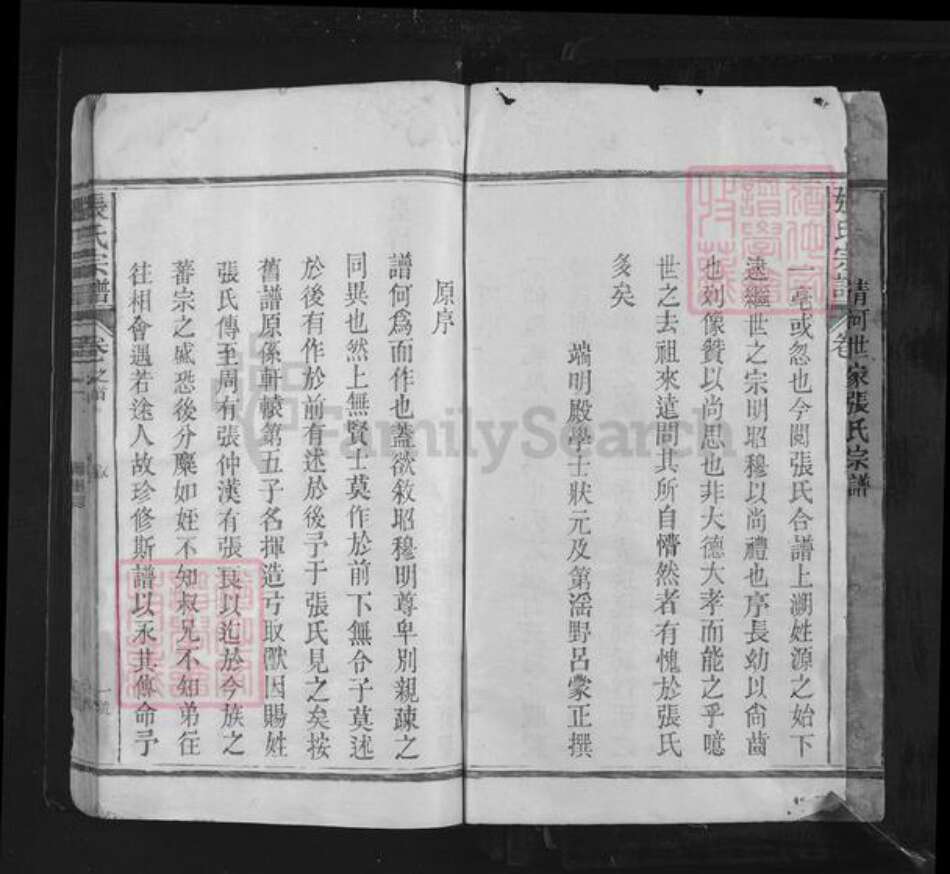 清河世家張氏宗譜
張氏宗譜 卷
一毫或忽也今閱張氏合譜上溯姓源之始下
逮繼世之宗明昭穆以尚禮也序長幼以尙齒
也列像贊以尚思也非大德大孝而能之乎噫
世之去祖來遠問其所自懵然者有愧於張氏
多矣
端明殿學士狀元及第滛野呂蒙正撰
原序
譜何爲而作也蓋欲敘昭穆明尊卑別親疎之
同異也然上無賢士莫作於前下無令子莫述
於後有作於前有述於後予于張氏見之矣按
舊譜原係軒轅第五子名揮造弓取獸因賜姓
張氏傳至周有張仲漢有張良以迄於今族之
蕃宗之盛恐後分縻如姪不知叔兄不知弟往
往相會遇若途人故珍修斯譜以永其傳命予
張氏宗譜 卷一之首
FamilySearch